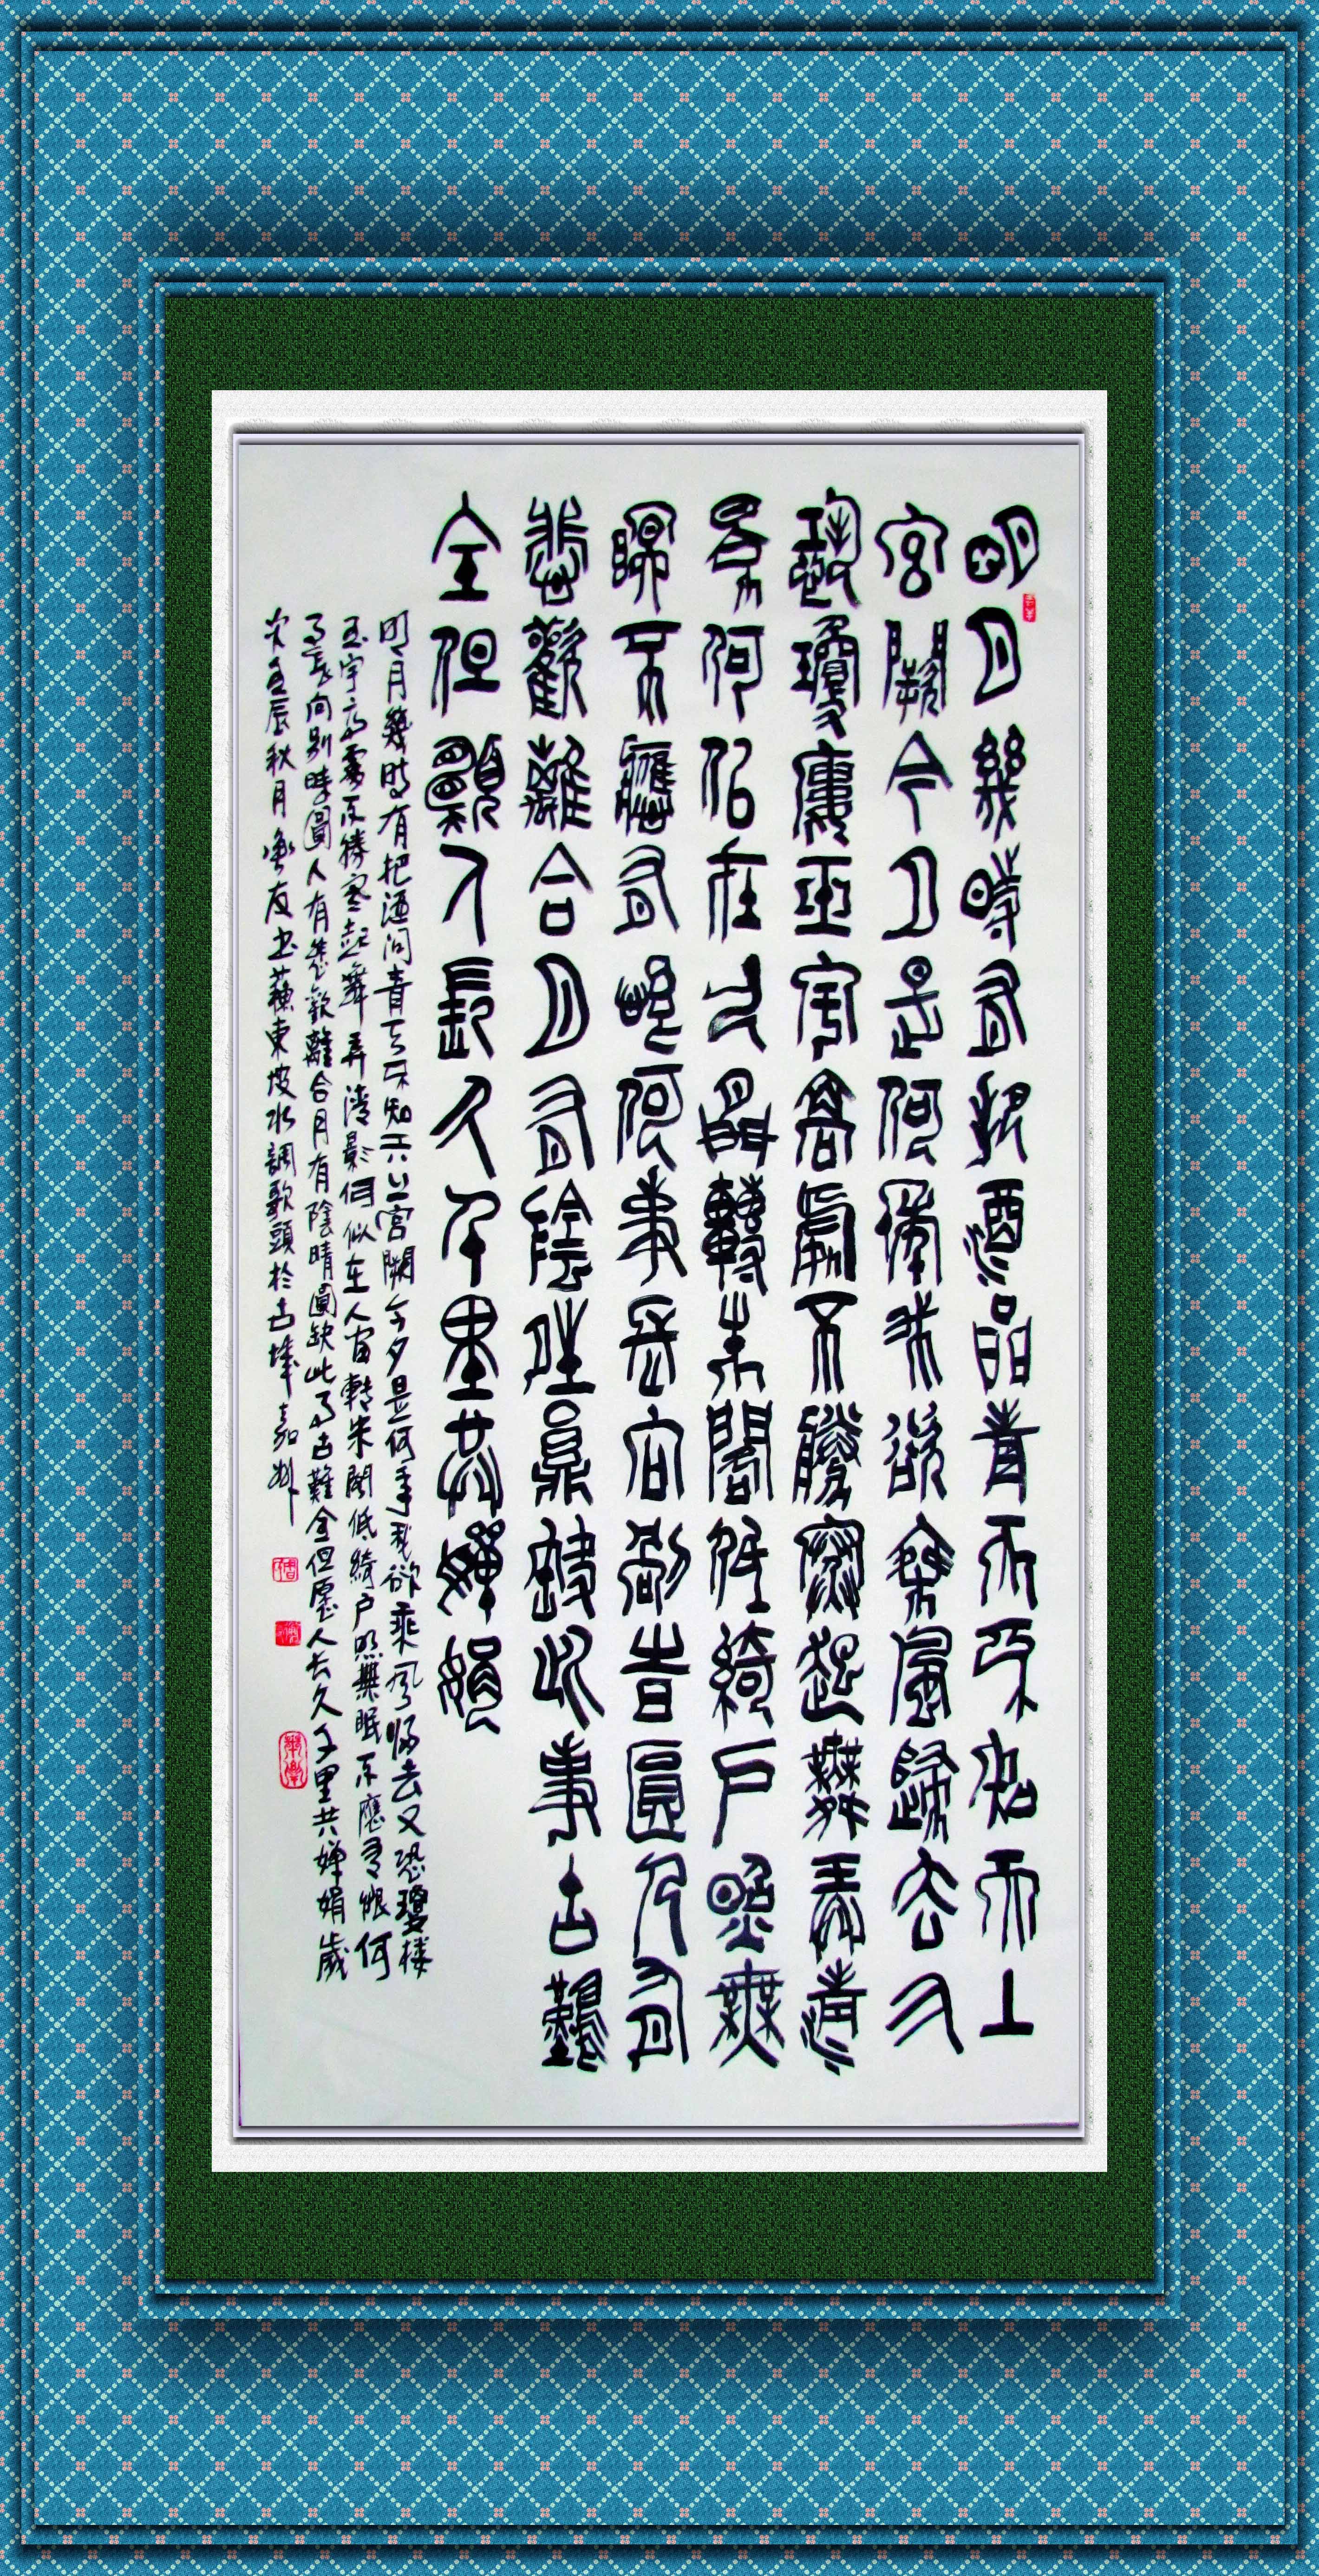 明月幾時有把酒問青天不知天上
宮闕今夕是何年我欲乘風歸去又
恐瓊樓玉宇高處不勝寒起舞弄清
影何似在人間轉朱閣低綺戶照無
眠不應有恨何事長向別時圓人有
悲歡離合月有陰晴圓缺此事古難
全但願人長久千里共嬋娟
明月幾時有把酒問青天不知天上宮闕今夕是何年我欲乘風歸去又恐瓊楼
玉宇高處不勝寒起舞弄清影何似在人間轉朱閣低綺户照無眠不應有恨何
事長向别時圓人有悲歡離合月有陰晴圓缺此事古難全但愿人长久千里共嬋娟歲
次壬辰秋月友书蘇東坡水調歌頭於古嘉州